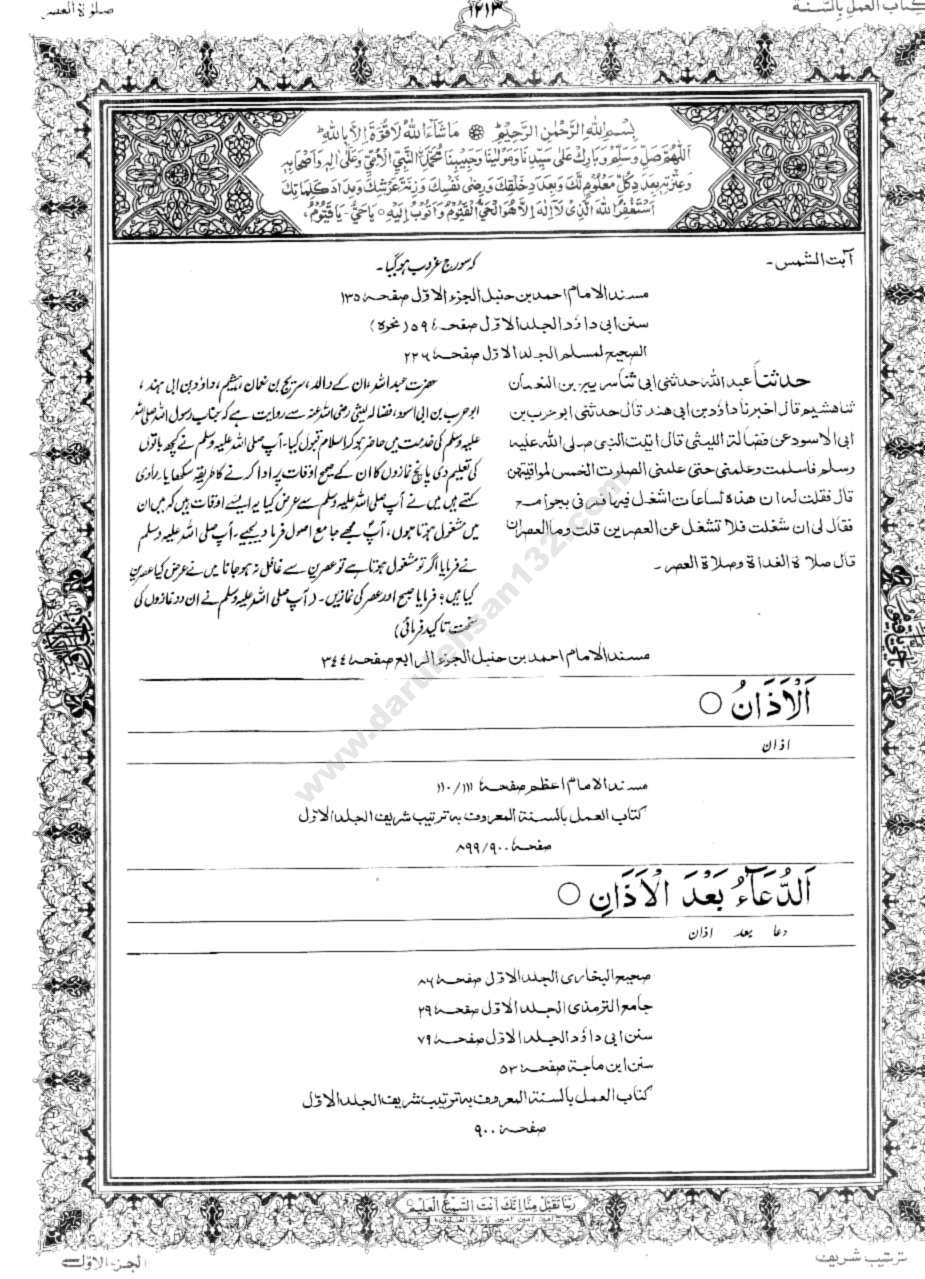 كتاب العمل بالسنة
١٢١٣
صلوٰة العصر
بِسْمِ اللهِ الرَّحْمٰنِ الرَّحِيْمِ ۞ مَا شَآءَ اللهُ لَا قُوَّةَ اِلَّا بِاللهِ
اَللّٰهُمَّ صَلِّ وَسَلِّمْ وَبَارِكْ عَلٰى سَيِّدِنَا وَمَوْلٰينَا وَحَبِيْبِنَا مُحَمَّدِ نِ النَّبِيِّ الْاُمِّيِّ وَعَلٰى اٰلِهٖ وَاَصْحَابِهٖ
وَعِتْرَتِهٖ بِعَدَدِ كُلِّ مَعْلُوْمٍ لَّكَ وَبِعَدَدِ خَلْقِكَ وَرِضٰى نَفْسِكَ وَزِنَةَ عَرْشِكَ وَمِدَادَ كَلِمَاتِكَ
اَسْتَغْفِرُ اللهَ الَّذِىْ لَآ اِلٰهَ اِلَّا هُوَ الْحَيُّ الْقَيُّوْمُ وَاَتُوْبُ اِلَيْهِ ۞ يَا حَيُّ - يَا قَيُّوْمُ
آبت الشمس -
کہ سورج غروب ہو گیا -
مسند الامام احمد بن حنبل الجزء الاوّل صفحہ ١٣٥
سنن ابی داؤد الجلد الاوّل صفحہ ٥٩ (نحوہ)
الصحیح لمسلم الجلد الاوّل صفحہ ٢٢٦
حدثنا عبد الله حدثنی ابی ثنا سریج بن النعمان
ثنا هشیم قال اخبرنا داؤد بن ابی هند قال حدثنی ابو حرب بن
ابی الاسود عن فضالة اللیثی قال اتیت النبی صلی الله علیه
وسلم فاسلمت وعلمنی حتی علمنی الصلوت الخمس لمواقیتهن
قال فقلت له ان هذه لساعات اشغل فیها فمرنی بجوامع
فقال لی ان شغلت فلا تشغل عن العصرین قلت وما العصران
قال صلاة الغداة وصلاة العصر -
حضرت عبد اللہ، ان کے والد، سریج بن نعمان، ہشیم، داؤد بن ابی ہند،
ابو حرب بن ابی اسود، فضالہ لیثی رضی اللہ عنہ سے روایت ہے کہ جناب رسول اللہ صلی اللہ
علیہ وسلم کی خدمت میں حاضر ہو کر اسلام قبول کیا۔ آپ صلی اللہ علیہ وسلم نے کچھ باتوں
کی تعلیم دی پانچ نمازوں کا ان کے صحیح اوقات پر ادا کرنے کا طریقہ سکھایا۔ راوی
کہتے ہیں میں نے آپ صلی اللہ علیہ وسلم سے عرض کیا یہ ایسے اوقات ہیں کہ میں ان
میں مشغول ہوتا ہوں، آپ مجھے جامع اصول فرما دیجیے۔ آپ صلی اللہ علیہ وسلم
نے فرمایا اگر تو مشغول ہوتا ہے تو عصرین سے غافل نہ ہو جانا میں نے عرض کیا عصرین
کیا ہیں؟ فرمایا صبح اور عصر کی نمازیں۔ (آپ صلی اللہ علیہ وسلم نے ان دو نمازوں کی
سخت تاکید فرمائی)
مسند الامام احمد بن حنبل الجزء الرابع صفحہ ٣٤٤
اَلْاَذَانُ ○
اذان
مسند الامام اعظم صفحہ ١١٠/١١١
کتاب العمل بالسنة المعروف بہ ترتیب شریف الجلد الاوّل
صفحہ ٨٩٩/٩٠٠
اَلدُّعَآءُ بَعْدَ الْاَذَانِ ○
دعا بعد اذان
صحیح البخاری الجلد الاوّل صفحہ ٨٦
جامع الترمذی الجلد الاوّل صفحہ ٢٩
سنن ابی داؤد الجلد الاوّل صفحہ ٧٩
سنن ابن ماجة صفحہ ٥٣
کتاب العمل بالسنة المعروف بہ ترتیب شریف الجلد الاوّل
صفحہ ٩٠٠
رَبَّنَا تَقَبَّلْ مِنَّا اِنَّكَ اَنْتَ السَّمِيْعُ الْعَلِيْمُ
ترتیب شریف
الجزء الاوّل
www.darulehsan132.com